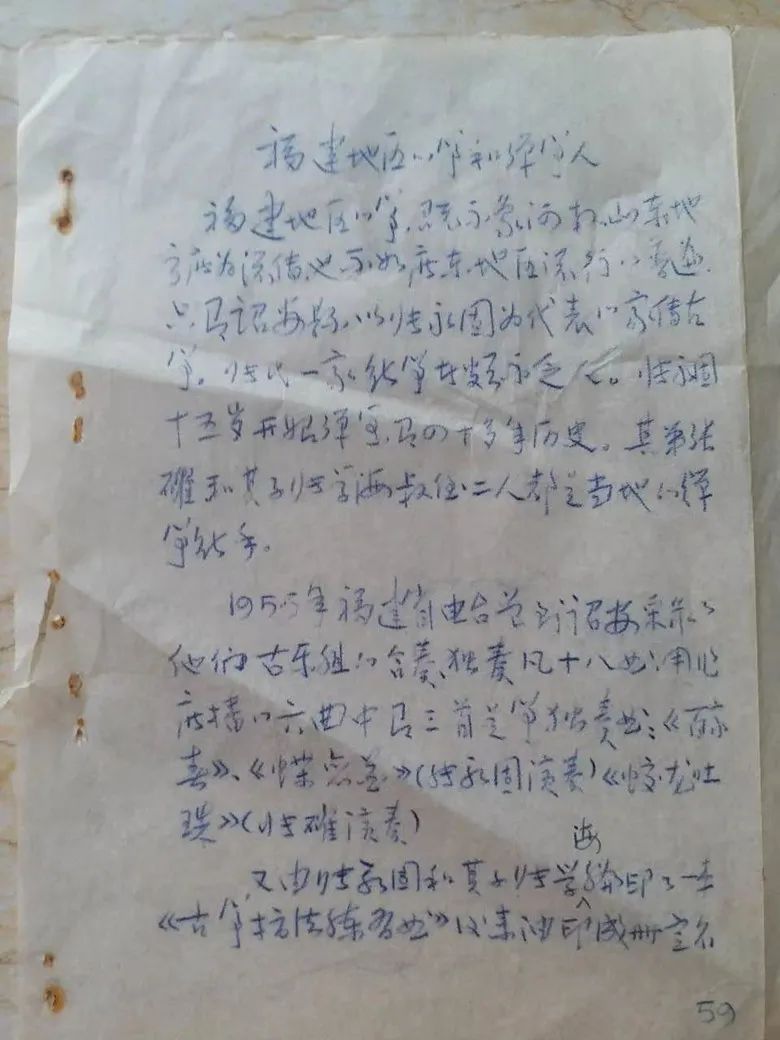 福建地区的筝和弹筝人
福建地区的筝，既不象河南、山东地
方广为流传，也不如广东地区流行的普遍，
只有诏安县的以张永固为代表的家传古
筝。张氏一家能筝者颇不乏人。张永固
十五岁开始弹筝，有四十多年历史。其弟张
确和其子张学海叔侄二人都是当地的弹
筝能手。
1955年福建省电台曾到诏安采录了
他们古乐组的合奏、独奏凡十八曲；用作
广播的六曲中有三首是筝独奏曲：《百家
春》、《蝶恋花》（张永固演奏）《蛟龙吐
珠》（张确演奏）
又由张永固和其子张学海编印了一本
《古筝指法练习曲》后来油印成册定名
59